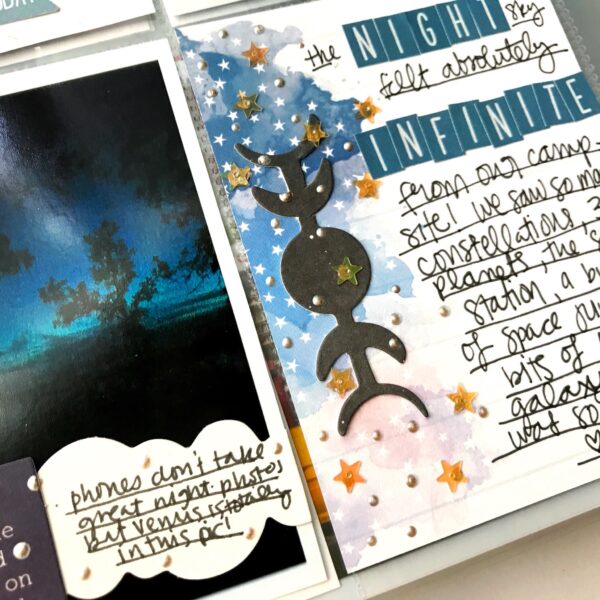 DAY
the NIGHT sky
felt absolutely
INFINITE
from our camp-
site! We saw so
constellations,
planets, the
station, a
of space
bits of
galax
was so
phones don't take
great night photos
but venus is totally
in this pic!
on